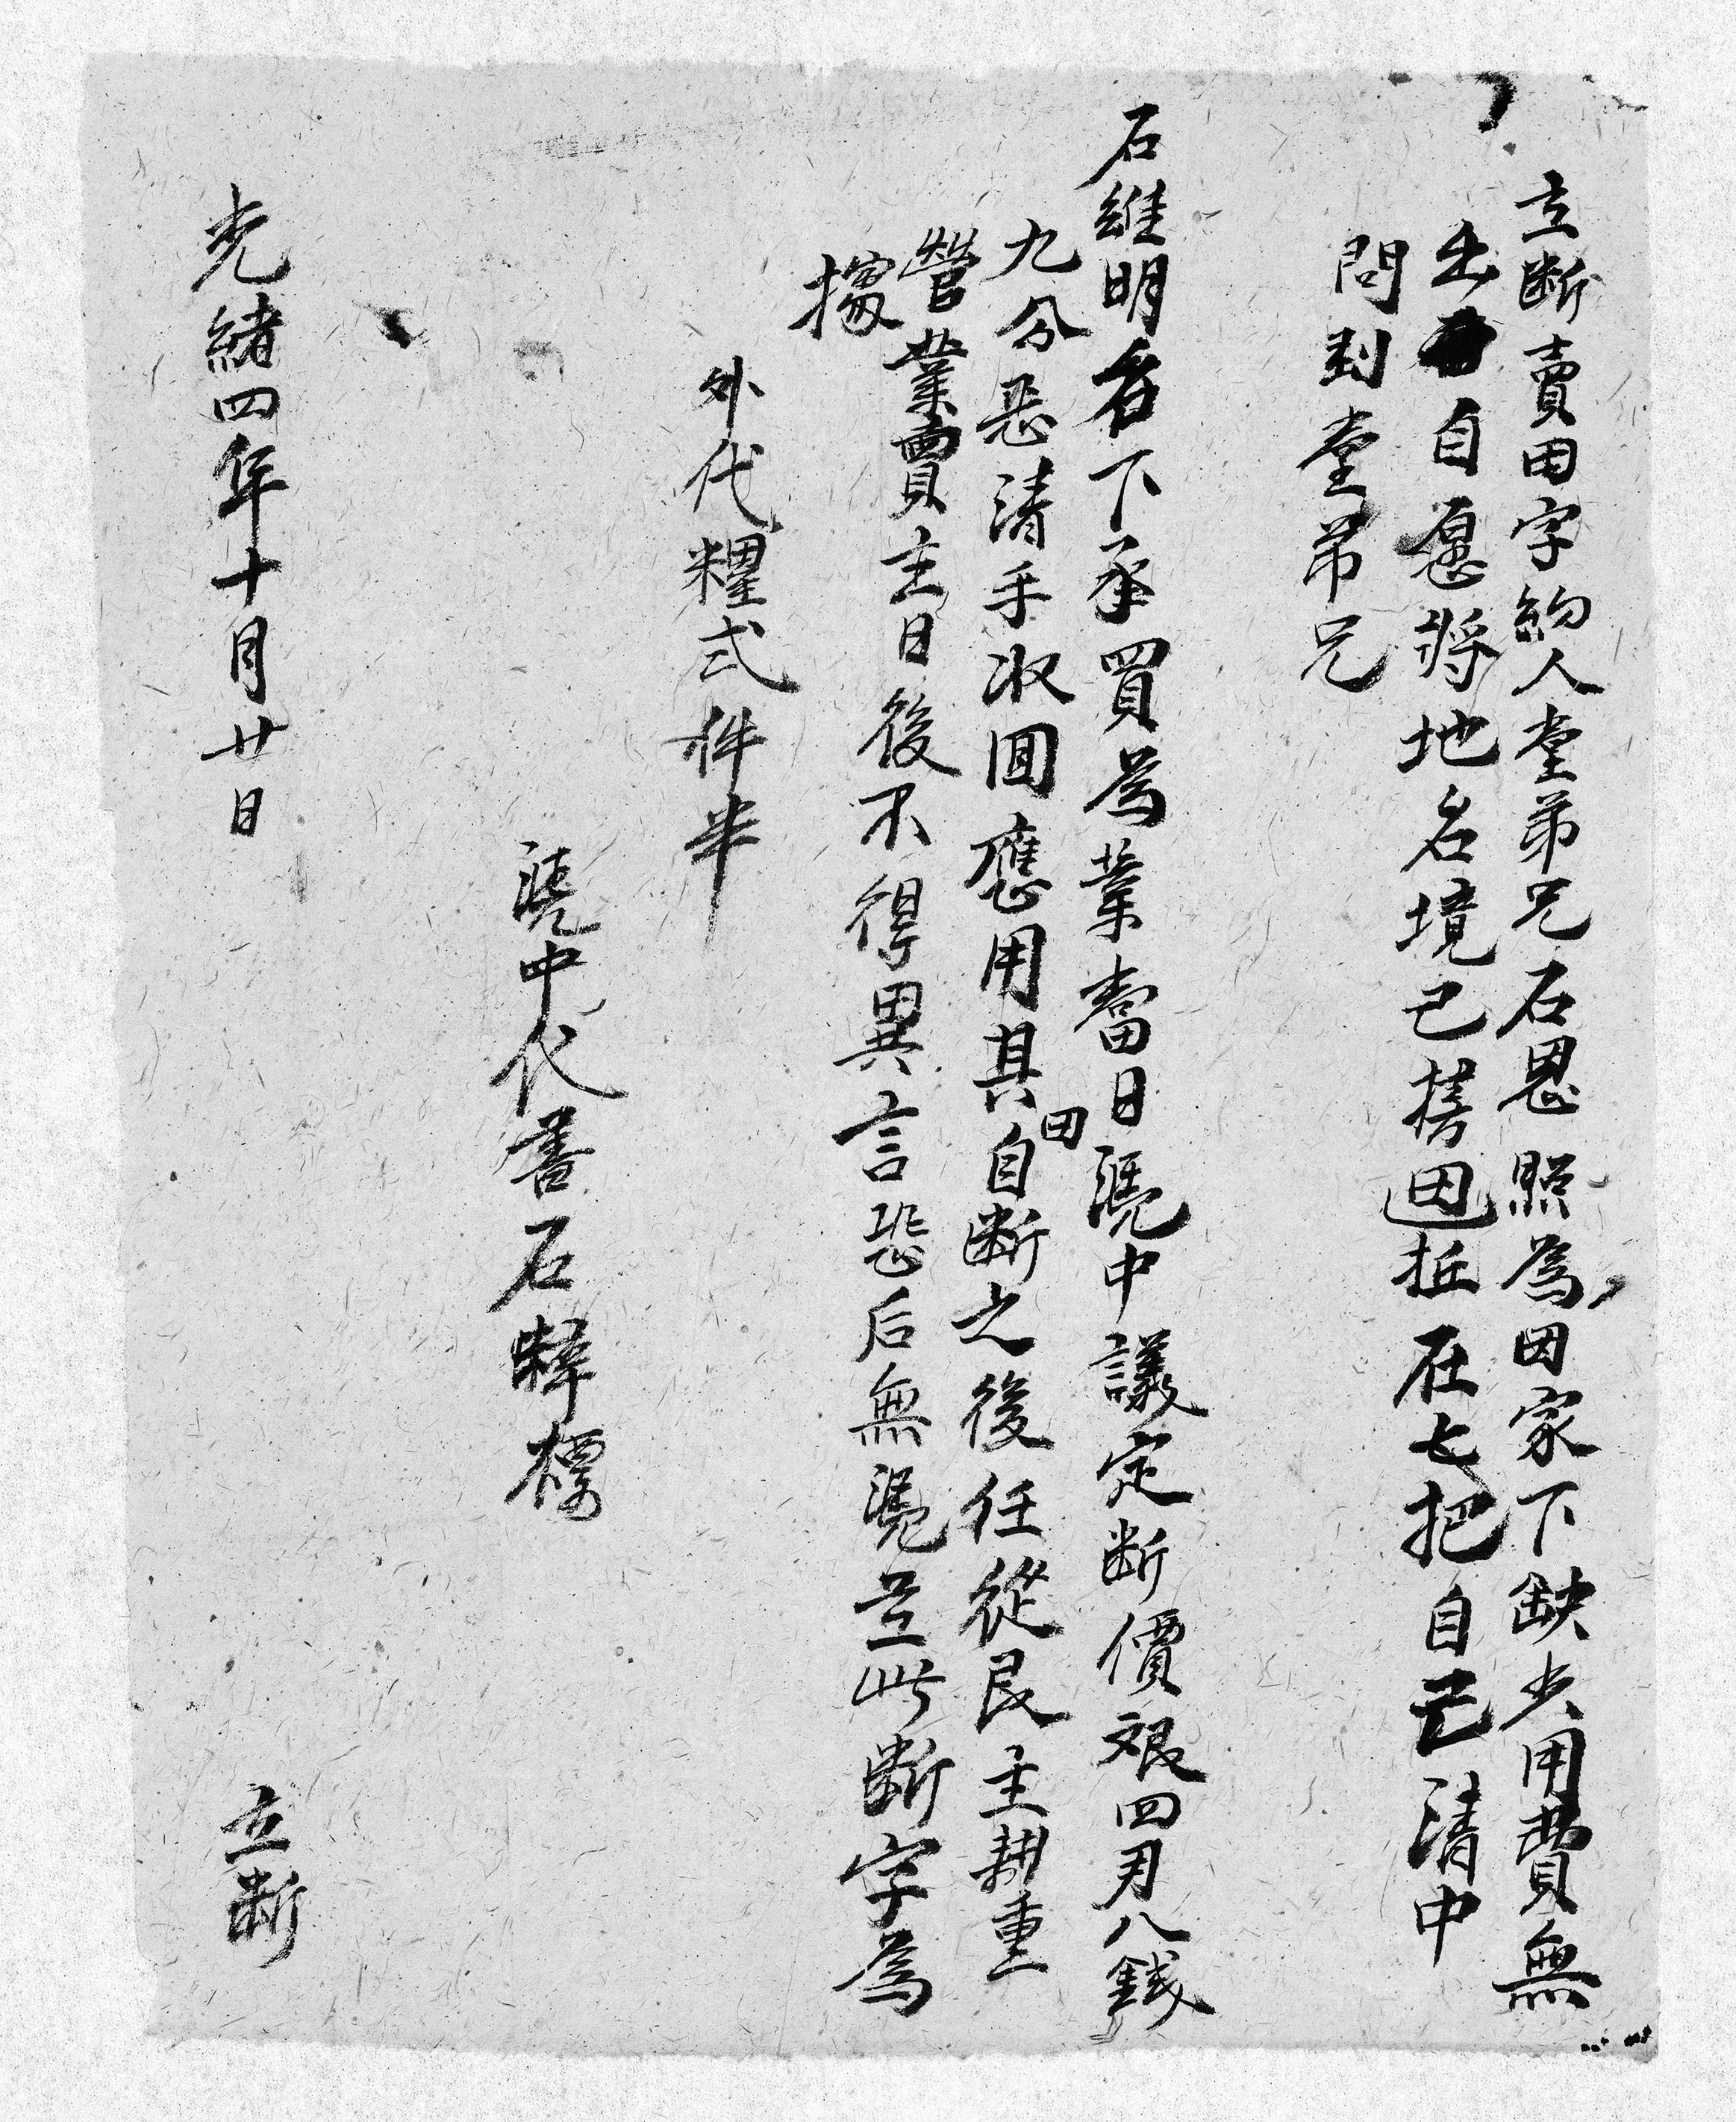 立断賣田字約人堂弟兄石恩照為因家下缺少用費無
出自愿將地名境己搓田坵在七把自己清中
問到堂弟兄
石維明名下承買為業當日憑中議定断價艰四月八錢
九分悉清手收囬應用其田自断之後任從艮主耕重
營業賣主日後不得異言恐后無憑立此断字為
據
外代糧式件半
憑中代書石輝標
光緒四年十月廿日 立断